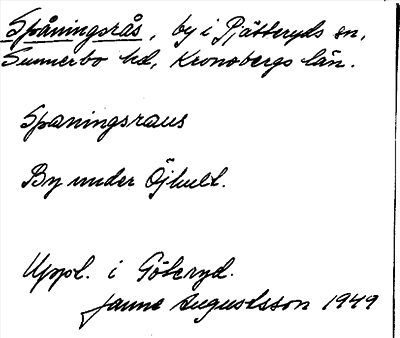 Spåningsrås, by i Pjätteryds sn,
Sunnerbo hd, Kronobergs län.
Spaningsraus
By under Öjhult.
Uppl. i Göteryd.
Janne Augustsson 1949